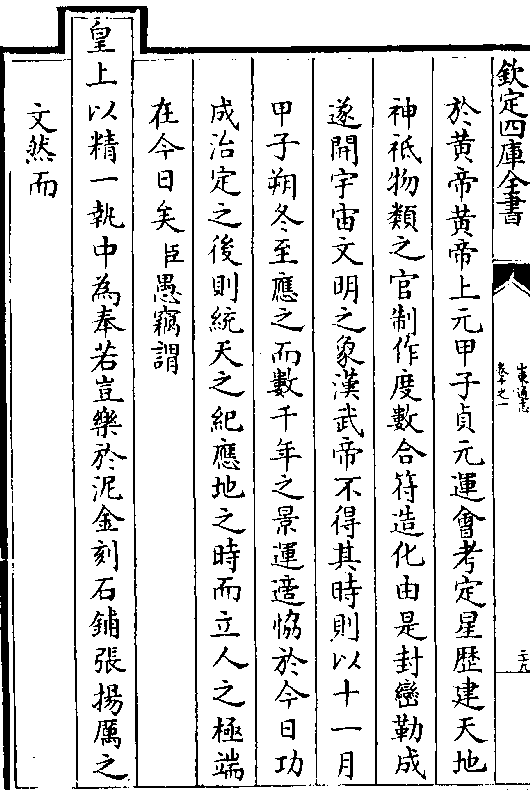 欽定四庫全書
山東通志
卷十之一
二十九
於黄帝黄帝上元甲子貞元運會考定星歴建天地
神祇物類之官制作度數合符造化由是封巒勒成
遂開宇宙文明之象漢武帝不得其時則以十一月
甲子朔冬至應之而數千年之景運適恊於今日功
成治定之後則統天之紀應地之時而立人之極端
在今日矣臣愚竊謂
皇上以精一執中為奉若豈樂於泥金刻石鋪張揚厲之
文然而